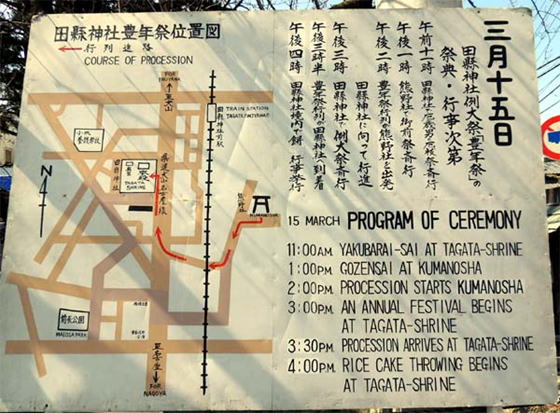 田縣神社豊年祭位置図
行列進路
COURSE OF PROCESSION
FOR
INUYAMA
至犬山
TRAIN STATION
TAGATA JINJYAMAE
田縣神社前駅
小牧
養護学校
TAGATA
SHRINE
田縣神社
県道犬山名古屋線
熊野社
KUMANOSHA
N
前原公園
MAEHARA PARK
至名古屋
FOR
NAGOYA
三月十五日
田縣神社例大祭「豊年祭」の
祭典・行事次第
午前十一時 田縣神社厄男厄女祓斎行
午後一時 熊野社御前祭斎行
午後二時 豊年祭行列熊野社を出発
田縣神社に向って行進
午後三時 田縣神社例大祭斎行
午後三時半 豊年祭行列が田縣神社へ到着
午後四時 田縣神社境内で餅行事斎行
15 MARCH PROGRAM OF CEREMONY
11:00AM. YAKUBARAI-SAI AT TAGATA-SHRINE
1:00PM. GOZENSAI AT KUMANOSHA
2:00PM. PROCESSION STARTS KUMANOSHA
3:00PM. AN ANNUAL FESTIVAL BEGINS
AT TAGATA-SHRINE
3:30PM. PROCESSION ARRIVES AT TAGATA-SHRINE
4:00PM. RICE CAKE THROWING BEGINS
AT TAGATA-SHRINE